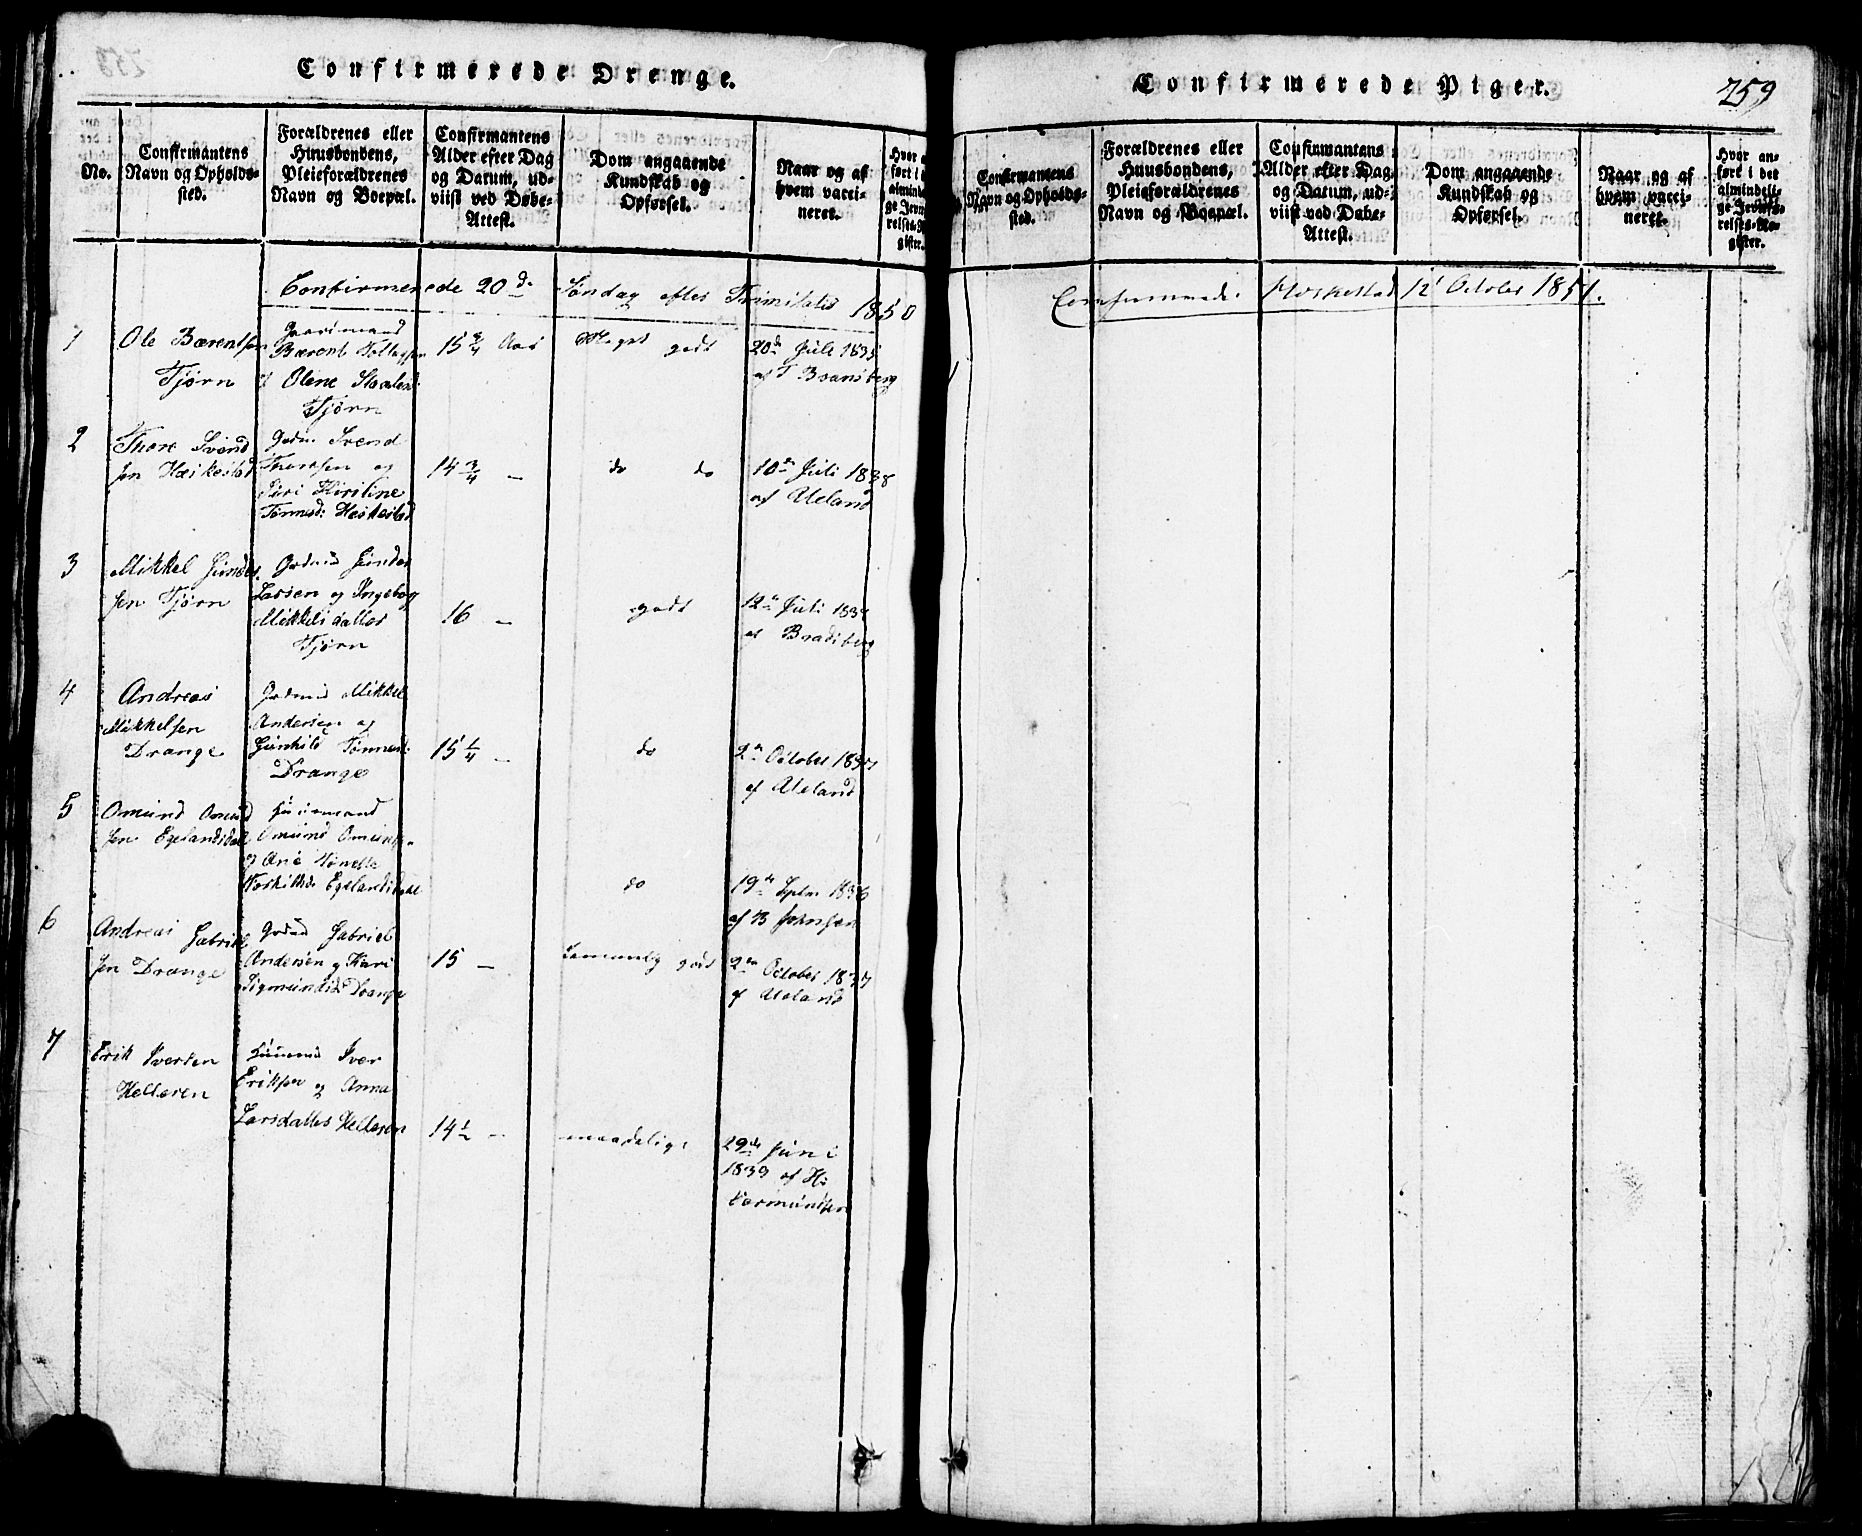 Confirmerede Drenge.
No.
Confirmantens
Navn og Opholds-
sted.
Forældrenes eller
Huusbondens,
Pleieforældrenes
Navn og Boepæl.
Confirmantens
Alder efter Dag
og Datum, ud-
viist ved Døbe-
Attest.
Dom angaaende
Kundskab og
Opførsel.
Naar og af
hvem vacci-
neret.
Confirmerede 20de Søndag efter Trinitatis 1850
1
Ole Bærentsen
Tjørn
Gaardmand
Bærent Tollagsen
og Olene
Tjørn
15 3/4 Aar
Meget godt
20de Juli 1835
af T Bransberg
2
Thore Svend
sen Hæskestad
Gdm. Svend
Thoresen og
Siri Kirstine
Tønnesd: Hæskestad
14 3/4 —
do do
10de Juli 1838
af Ueland
3
Mikkel Gunder
sen Tjørn
Grdmd Gunder
Larsen og Ingeborg
Mikkelsdatter
Tjørn
16 —
godt
12te Juli
af
4
Andreas
Mikkelsen
Drange
Grdmd Mikkel
Andersen og
Gunhild Tønnesd:
Drange
15 1/4 —
do
2den October 1837
af Ueland
5
Omund Omund
sen Egelandsdal
Huusmand
Omund Omunds.
og Ane
Egelandsdal
do
19de Septbr 1836
af B Johnsen
6
Andreas Gabriel
sen Drange
Grdmd Gabriel
Andersen og Kari
Sigmundsd. Drange
15 —
temmelig godt
2den October 1837
af Ueland
7
Erik Iversen
Helleren
Huusmd Iver
Eriksen og Anna
Larsdatter Helleren
14 1/2 —
maadelig
29de Juni
1839 af H:
Vormundsen
Confirmerede Piger.
259
Confirmantens
Navn og Opholds-
sted.
Forældrenes eller
Huusbondens,
Pleieforældrenes
Navn og Boepæl.
Confirmantens
Alder efter Dag
og Datum, ud-
viist ved Døbe-
Attest.
Dom angaaende
Kundskab og
Opførsel.
Naar og af
hvem vacci-
neret.
Hvor an-
ført i det
almindeli-
ge Jevnfø-
relses-Re-
gister.
Confirmerede Hæskestad 12 October 1851.